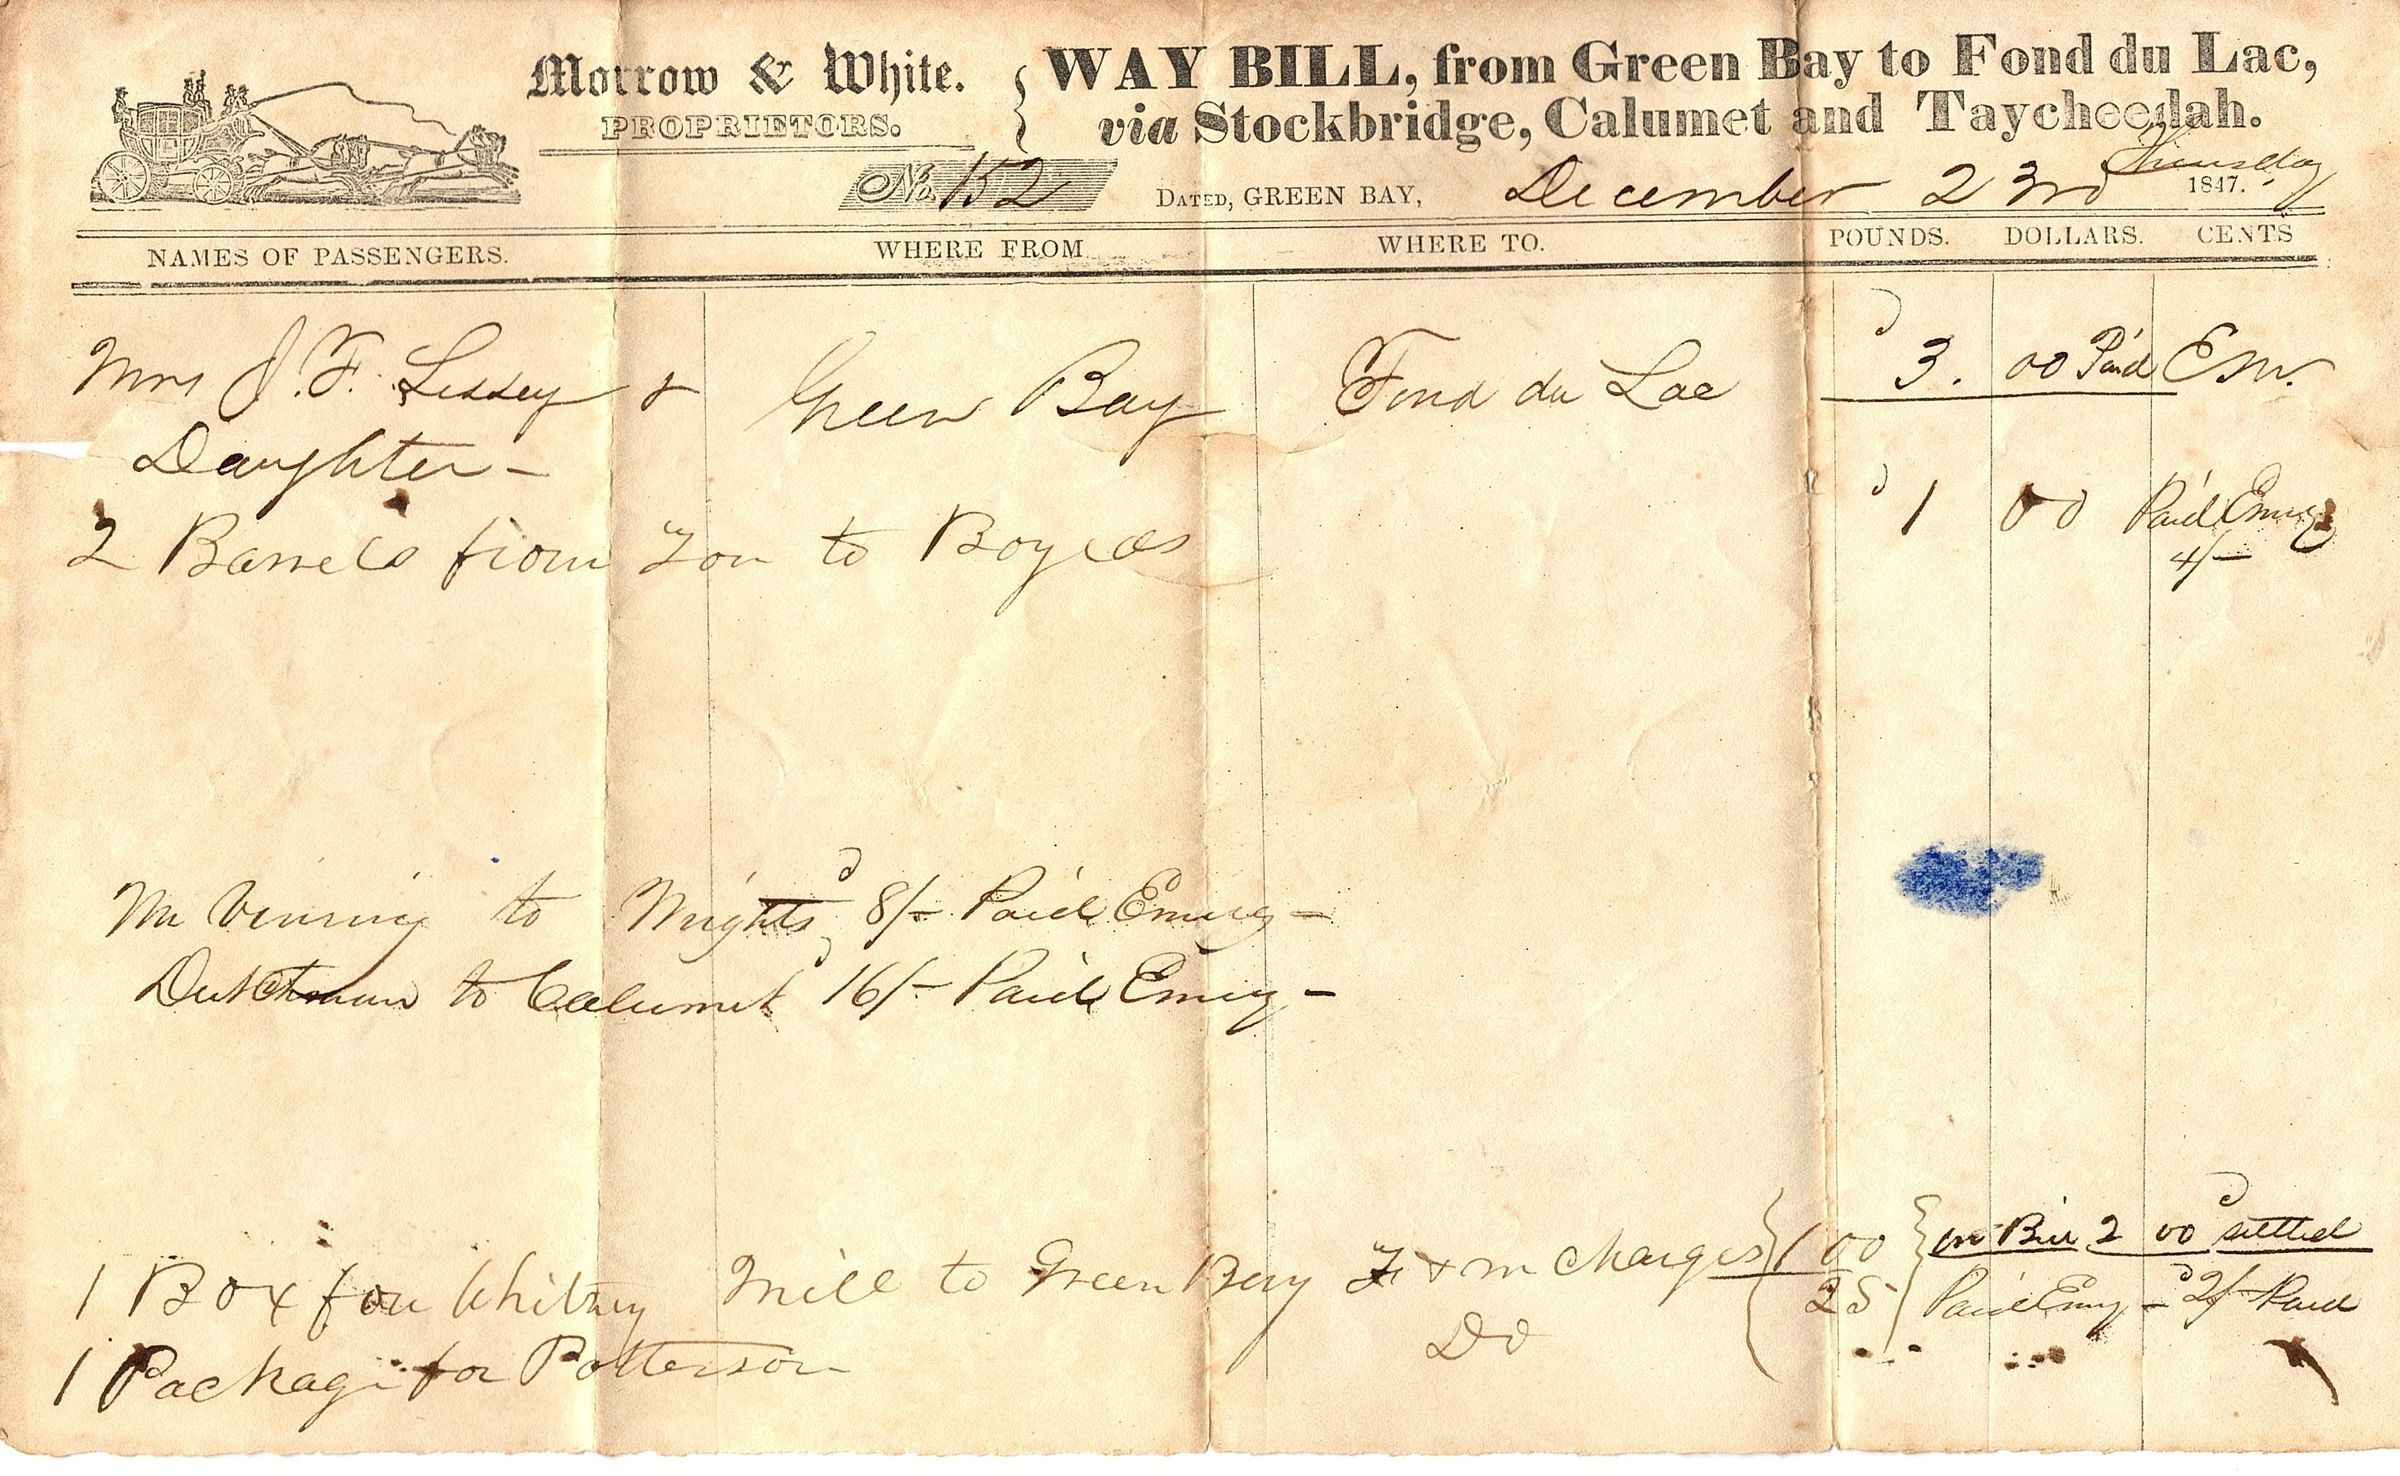 Morrow & White.
PROPRIETORS.
WAY BILL, from Green Bay to Fond du Lac,
via Stockbridge, Calumet and Taycheedah.
No. 152 DATED, GREEN BAY, December 23rd 1847. Thursday
NAMES OF PASSENGERS. WHERE FROM WHERE TO. POUNDS. DOLLARS. CENTS
Mrs J. F. Lessey & Green Bay Fond du Lac 3. 00 Paid
Daughter -
2 Barrels from to 1 00 Paid Emery
4/-
Mr to Wrights 8/- Paid Emery -
Dutchman to Calumet 16/- Paid Emery -
1 Box for Whitney Mill to Green Bay F & m Charges 1 00 on Bill 2 00 settled
25 Paid Emery - 2/- Paid
1 Package for Patterson Do